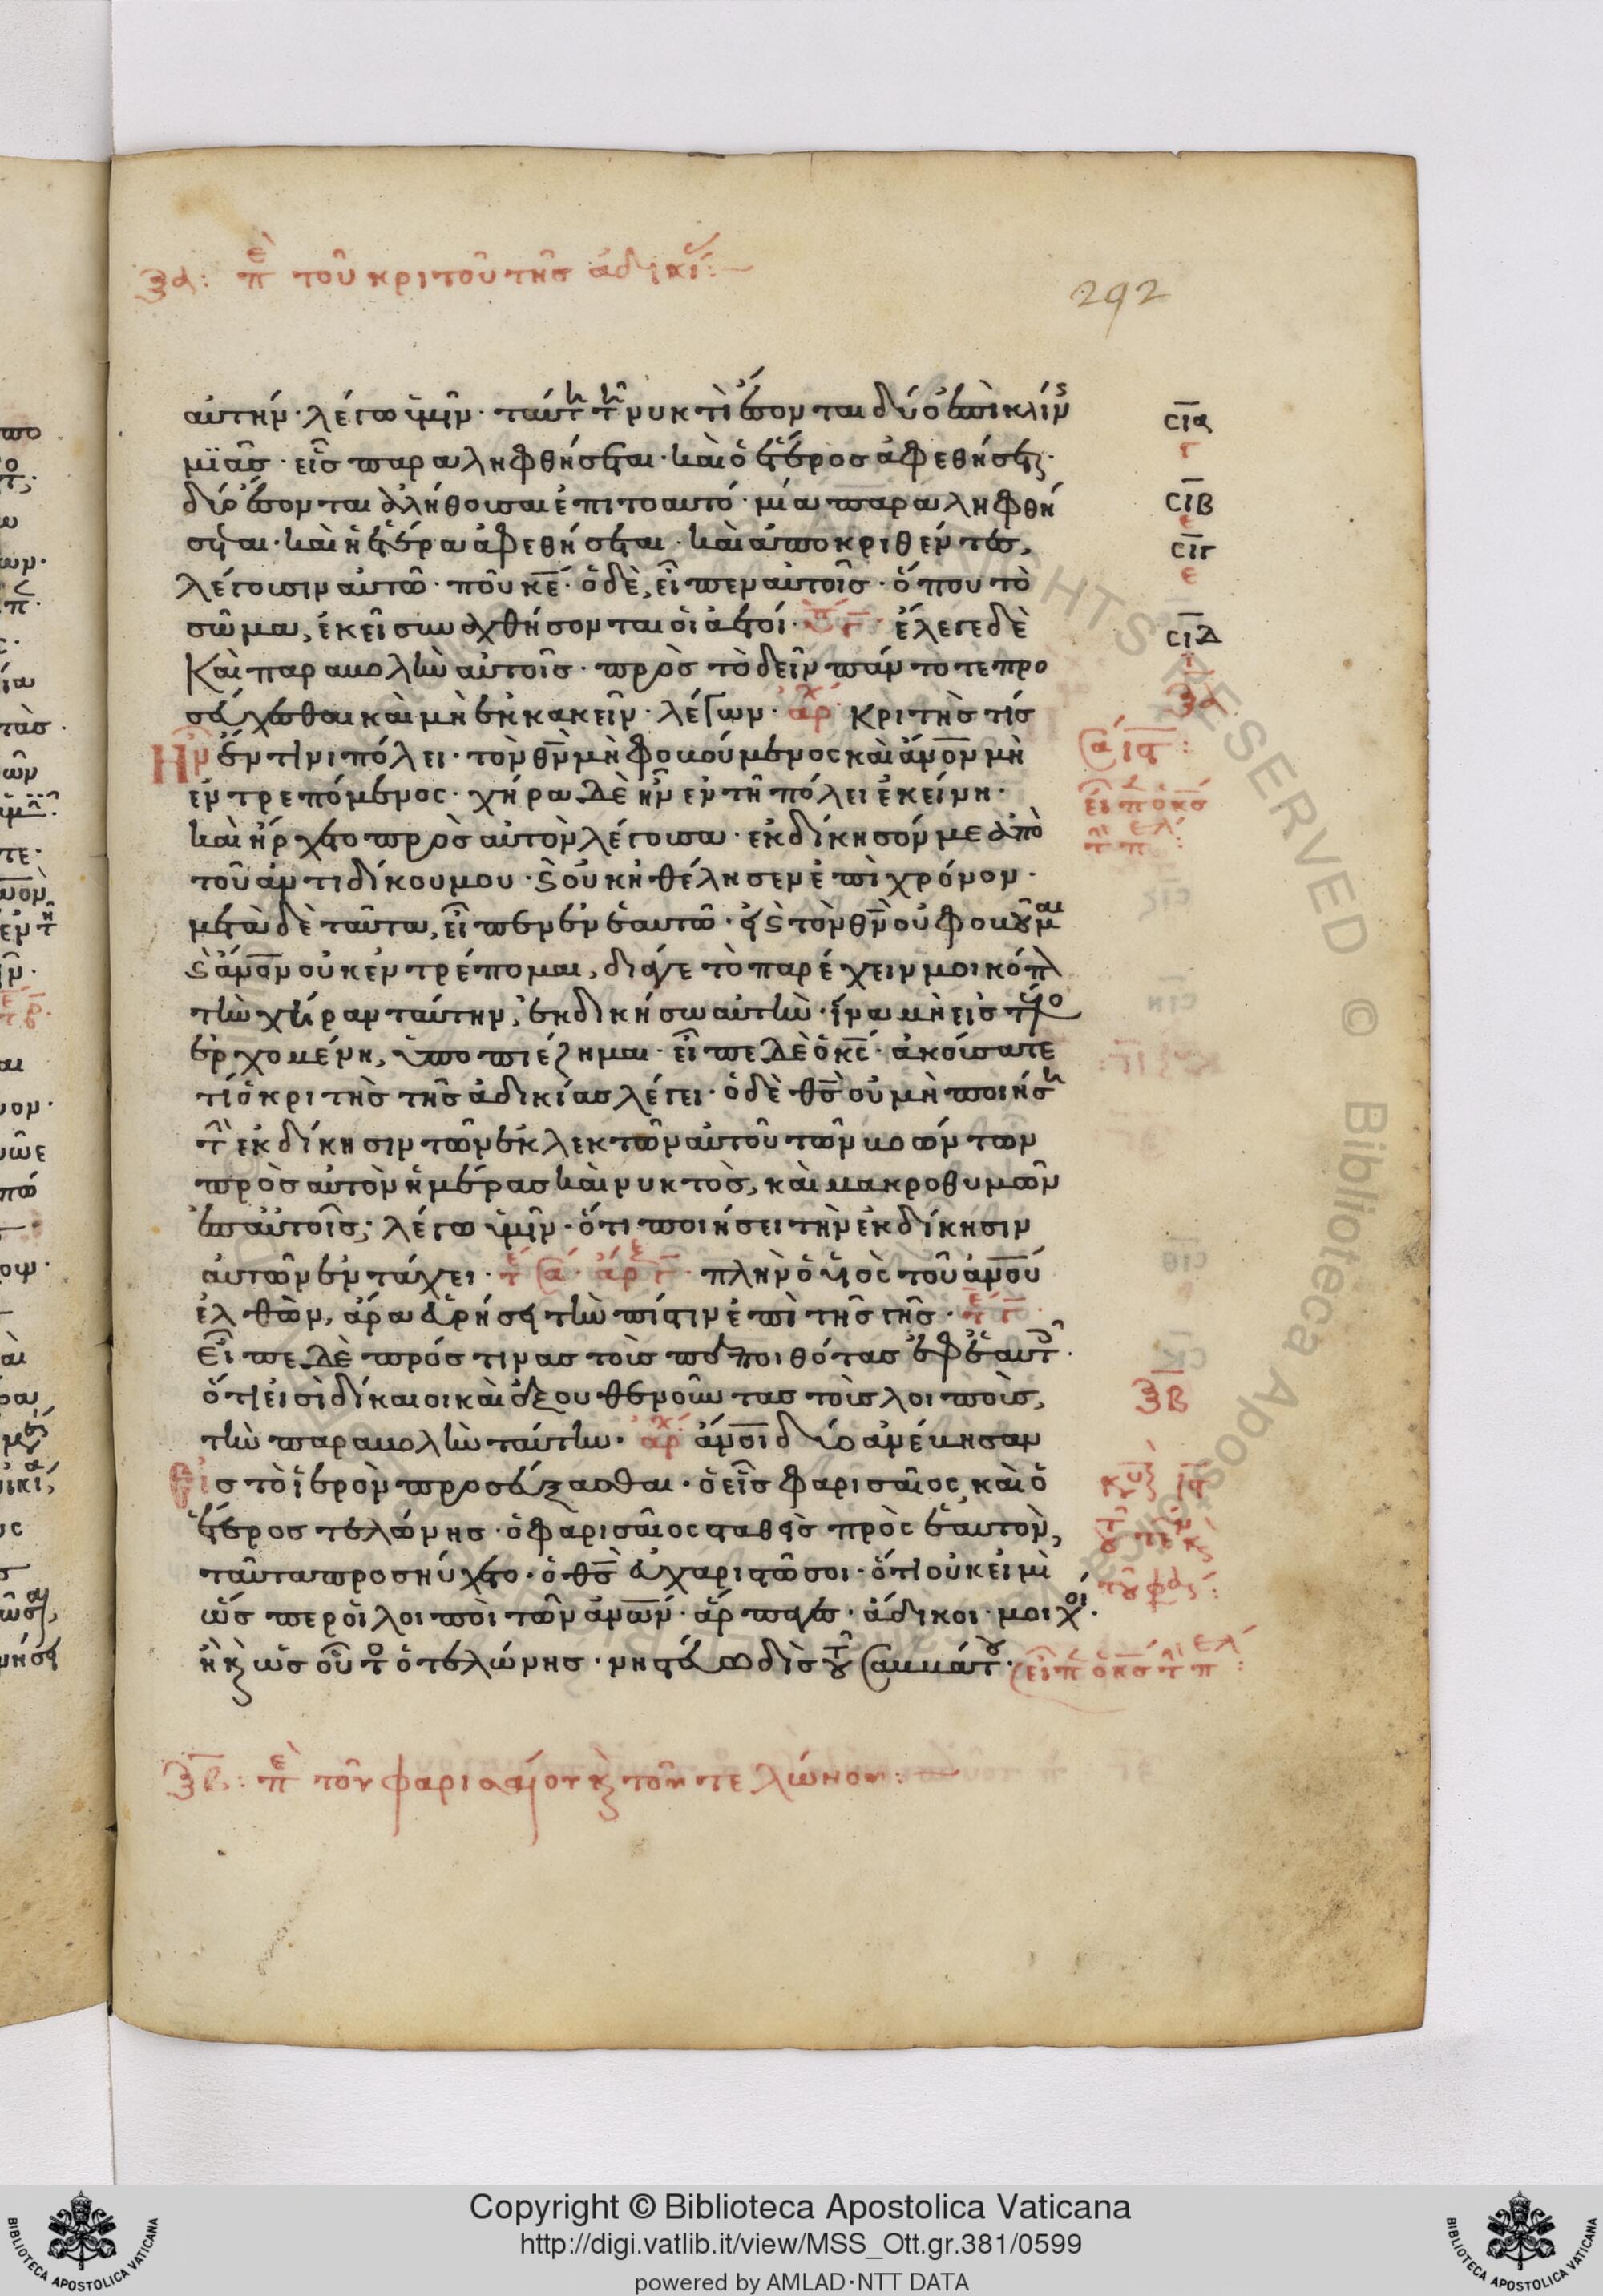 ξα: πε τοῦ κριτοῦ τῆς ἀδικί:
292
αὐτήν· λέγω ὑμῖν· ταύτη τῆ νυκτὶ ἔσονται δύο ἐπὶ κλίν
μϊᾶς· εἷς παραληφθήσεται· καὶ ὁ ἕτερος ἀφεθήσεται·
δύο ἔσονται ἀλήθουσαι ἐπιτοαυτό· μία παραληφθή
σεται· καὶ ἡ ἑτέρα ἀφεθήσεται· καὶ ἀποκριθέντες,
λέγουσιν αὐτῶ· ποῦ κε· ὁ δὲ, εἶπεν αὐτοῖς· ὅπου τὸ
σῶμα, ἐκεῖ συναχθήσονται οἱ ἀετοί· ἔλεγε δὲ
Καὶ παραβολὴν αὐτοῖς· πρὸς τὸ δεῖν πάντοτε προ
σεύχεσθαι καὶ μὴ ἐκκακεῖν· λέγων· ἀρχ Κριτὴς τίς
Ἦν ἔν τινι πόλει· τὸν θν μὴ φοβούμενος καὶ ἀνον μὴ
ἐντρεπόμενος· χήρα δὲ ἦν ἐν τῆ πόλει ἐκείνη·
καὶ ἤρχετο πρὸς αὐτὸν λέγουσα· ἐκδίκησόν με ἀπὸ
τοῦ ἀντιδίκου μου· καὶ οὐκ ἠθέλησεν ἐπὶ χρόνον·
μετὰ δὲ ταῦτα, εἶπεν ἐν ἑαυτῶ· εἰ καὶ τὸν θν οὐ φοβοῦμαι
καὶ ἀνον οὐκ ἐντρέπομαι, διάγε τὸ παρέχειν μοι κόπ
τὴν χήραν ταύτην, ἐκδικήσω αὐτήν· ἵνα μὴ εἰς τέλο
ἐρχομένη, ὑποπιέζη με· εἶπε δὲ ὁ κς· ἀκούσατε
τί ὁ κριτὴς τῆς ἀδικίας λέγει· ὁ δὲ θς οὐ μὴ ποιήση
τ ἐκδίκησιν τῶν ἐκλεκτῶν αὐτοῦ τῶν βοώντων
πρὸς αὐτὸν ἡμέρας καὶ νυκτὸς, καὶ μακροθυμῶν
ἐπαὐτοῖς; λέγω ὑμῖν· ὅτι ποιήσει τὴν ἐκδίκησιν
αὐτῶν ἐν τάχει· πλὴν ὁ υἱὸς τοῦ ἀνου
ἐλθὼν, ἄρα εὑρήσει τὴν πίστιν ἐπὶ τῆς γῆς·
Εἶπε δὲ πρός τινας τοὺς πεποιθότας ἐφἑαυτ·
ὅτι εἰσὶ δίκαιοι καὶ ἐξουθενοῦντας τοὺς λοιποὺς,
τὴν παραβολὴν ταύτην· ἀρχ ἄνοι δύο ἀνέβησαν
Εἰς τὸ ἱερὸν προσεύξασθαι· ὁ εἷς φαρισαῖος, καὶ ὁ
ἕτερος τελώνης· ὁ φαρισαῖος σταθεὶς πρὸς ἑαυτὸν,
ταῦτα προσηύχετο· ὁ θς εὐχαριστῶ σοι· ὅτι οὐκ εἰμὶ
ὥς περ οἱ λοιποὶ τῶν ἀνων· ἅρπαγες· ἄδικοι· μοιχοί·
ἢ καὶ ὡς οὗτο ὁ τελώνης· νηστεύω δὶς τοῦ σαββάτου·
ξβ: πε τοῦ φαρισαίου καὶ τοῦ τελώνου:
σια
γ
σιβ
ε
σιγ
ε
σιδ
ι
ξα
ξβ
Copyright © Biblioteca Apostolica Vaticana
http://digi.vatlib.it/view/MSS_Ott.gr.381/0599
powered by AMLAD·NTT DATA
BIBLIOTECA APOSTOLICA VATICANA
BIBLIOTECA APOSTOLICA VATICANA